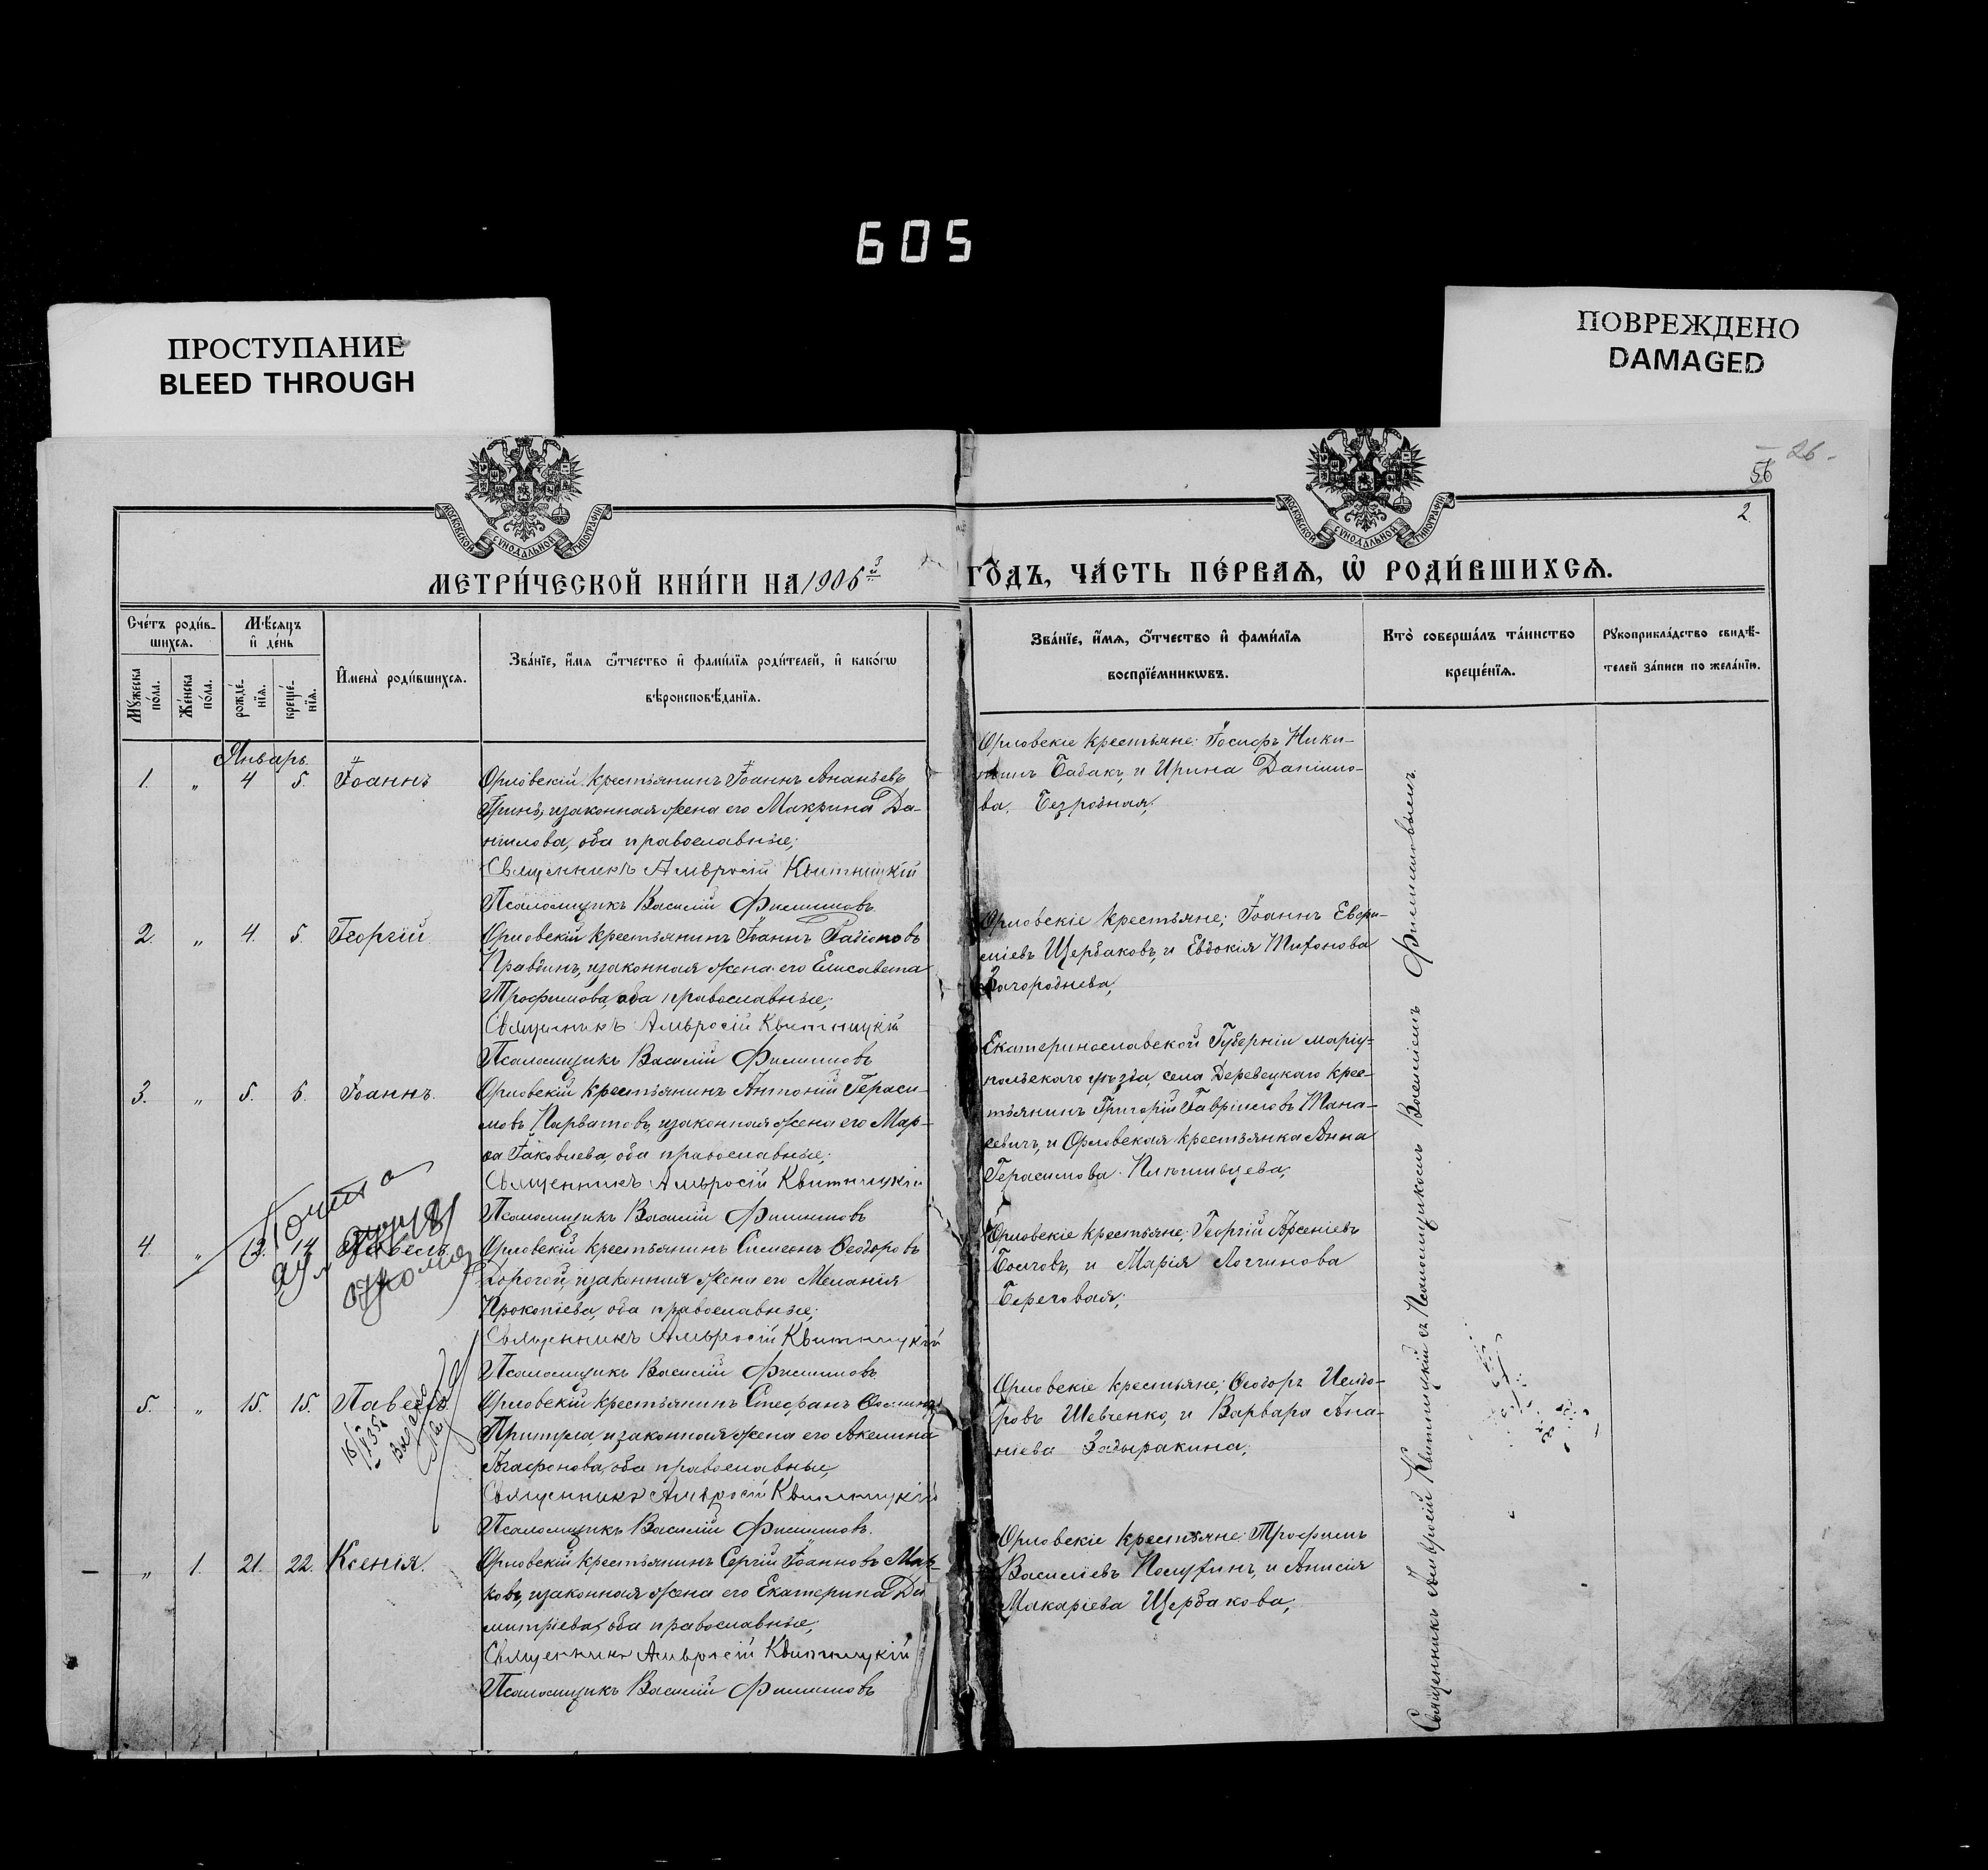 605
ПРОСТУПАНИЕ
BLEED THROUGH
ПОВРЕЖДЕНО
DAMAGED
26
56
2
МОСКОВСКОЙ СѴНОДАЛЬНОЙ ТИПОГРАФІИ
МОСКОВСКОЙ СѴНОДАЛЬНОЙ ТИПОГРАФІИ
МЕТРИ́ЧЕСКОЙ КНИ́ГИ НА 1906й ГО́ДЪ, ЧА́СТЬ ПЕ́РВАЯ, Ѡ РОДИ́ВШИХСЯ.
Сче́тъ роди́в-
шихся.
Мꙋ́жеска по́ла.
Же́нска по́ла.
Мѣ́сяцъ
и҆ де́нь
рожде́-
нїя.
креще́-
нїя.
И҆мена̀ роди́вшихся.
Зва́нїе, и҆́мя ѻ҆́тчество и҆ фами́лїя роди́телей, и҆ како́гѡ
вѣроисповѣ́данїя.
Зва́нїе, и҆́мя, ѻ҆́тчество и҆ фами́лїя
воспрїе́мникѡвъ.
Кто̀ соверша́лъ та́инство
креще́нїя.
Рꙋкоприкла́дство свидѣ́-
телей за́писи по жела́нїю.
Январь.
1. „ 4 5. Іоаннъ
Орловскій крестьянинъ Іоаннъ Ананьевъ
и законная жена его Макрина Да-
нилова, оба православные;
Священникъ Амвросій Квитницкій
Псаломщикъ Василій Филипповъ
Орловскіе крестьяне: Іосифъ Ники-
Бабакъ, и Ирина Данило-
ва Безродная;
2. „ 4. 5. Георгій
Орловскій крестьянинъ Іоаннъ
Правдинъ, и законная жена его Елисавета
Трофимова, оба православные;
Священникъ Амвросій Квитницкій
Псаломщикъ Василій Филипповъ
Орловскіе крестьяне; Іоаннъ Евфи-
міевъ Щербаковъ, и Евдокія Тихонова
Загороднева;
3. „ 5. 6. Іоаннъ.
Орловскій крестьянинъ Антоній Гераси-
мовъ и законная жена его Мар-
ѳа Іаковлева, оба православные;
Священникъ Амвросій Квитницкій
Псаломщикъ Василій Филипповъ
Екатеринославской Губерніи Маріу-
польскаго уѣзда, села крес-
тьянинъ Григорій Гавріиловъ Тана-
севичъ, и Орловская крестьянка Анна
Герасимова
4. „ 13. 14 Павелъ
Орловскій крестьянинъ Симеонъ Ѳеодоровъ
Дорогой, и законная жена его Меланія
Прокопіева, оба православные;
Священникъ Амвросій Квитницкій
Псаломщикъ Василій Филипповъ
Орловскіе крестьяне; Георгій Арсеніевъ
и Марія Логгинова
Береговая;
5. „ 15. 15. Павелъ.
Орловскій крестьянинъ Стефанъ
Притула, и законная жена его Акелина
Агафонова, оба православные,
Священникъ Амвросій Квитницкій
Псаломщикъ Василій Филипповъ.
Орловскіе крестьяне; Ѳеодоръ Исидо-
ровъ Шевченко, и Варвара Ана-
ніева Задыракина;
„ 1. 21. 22. Ксенія.
Орловскій крестьянинъ Сергій Іоанновъ
ковъ, и законная жена его Екатерина Ди
митріева, оба православные;
Священникъ Амвросій Квитницкій
Псаломщикъ Василій Филипповъ
Орловскіе крестьяне: Трофимъ
Василіевъ Полухинъ, и Анисія
Макаріева Щербакова;
Священникъ Амвросій Квитницкій съ Псаломщикомъ Василіемъ Филипповымъ.